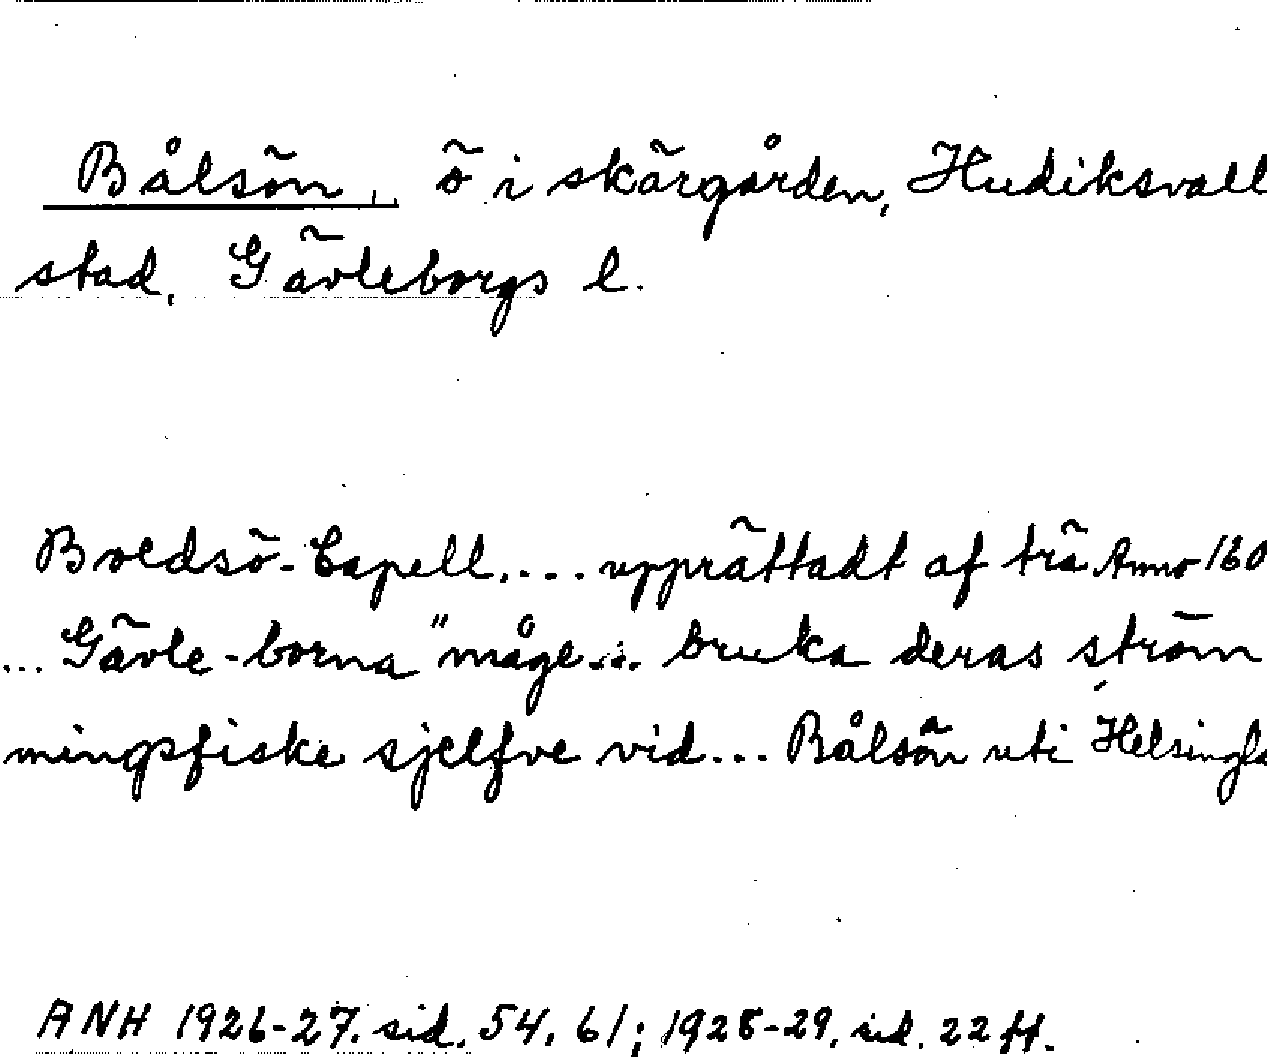 Bålsön, ö i skärgården, Hudiksvall
stad, Gävleborgs l.
Boldsö-Capell.... upprättadt af trä Anno 160
... Gävle-borna "måge... bruka deras ström
mingsfiske sjelfve vid... Bålsön uti Helsingla
ANH 1926-27. sid. 54, 61; 1928-29, sid. 22 ff.